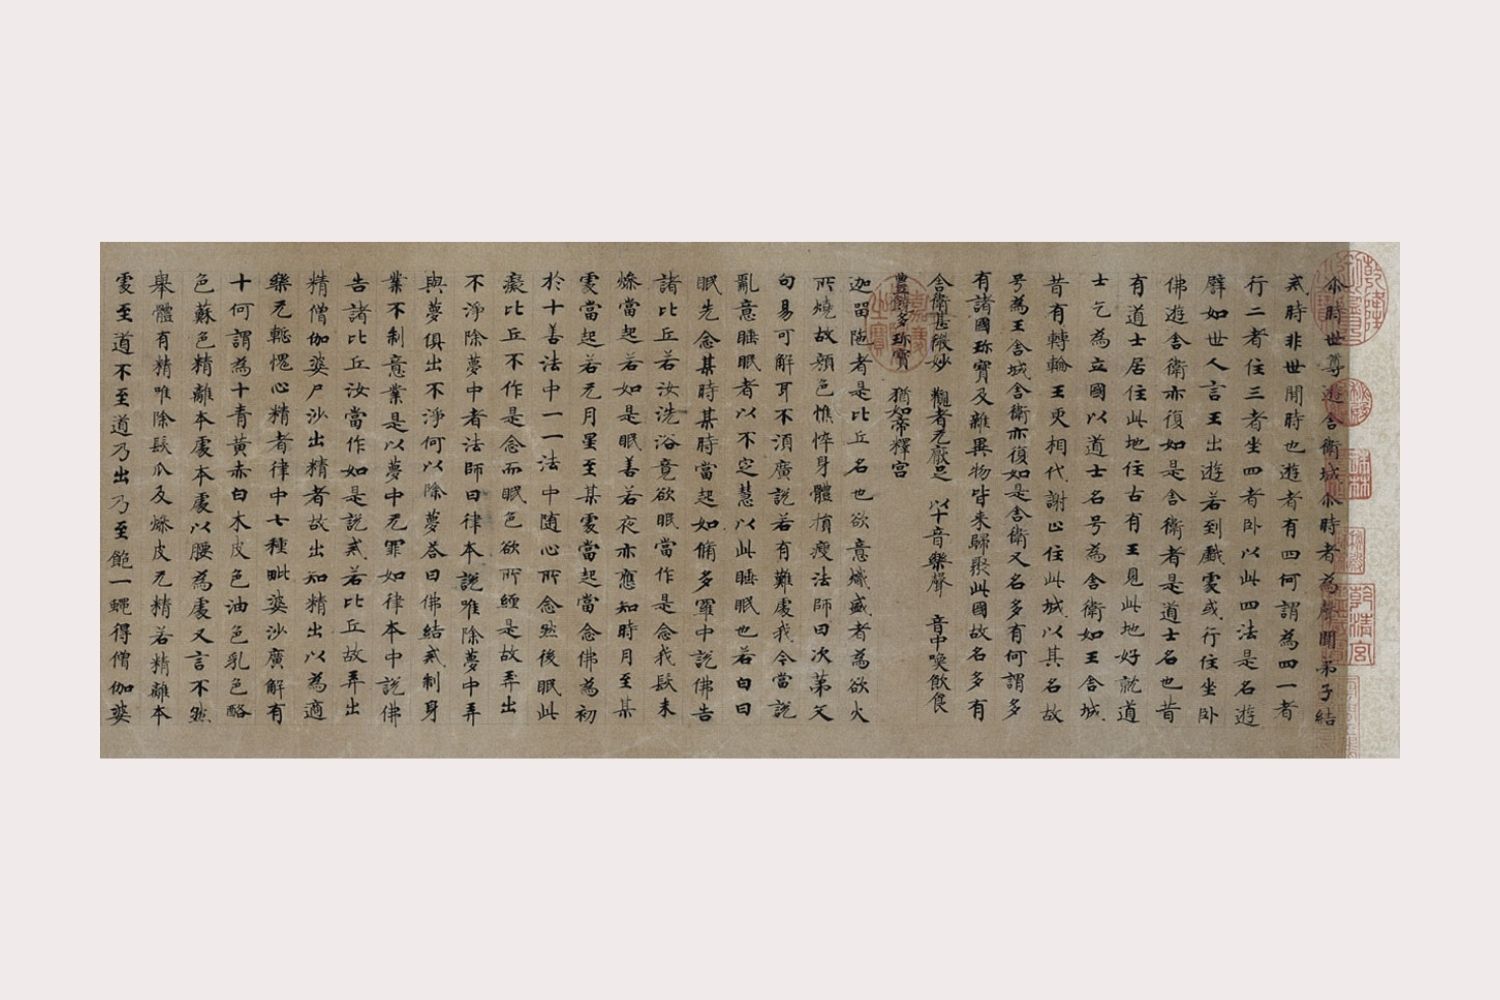 尒時世尊遊舍衛城尒時者為聲聞弟子結
戒時非世間時也遊者有四何謂為四一者
行二者住三者坐四者卧以此四法是名遊
譬如世人言王出遊若到戲處或行住坐卧
佛遊舍衛亦復如是舍衛者是道士名也昔
有道士居住此地往古有王見此地好就道
士乞為立國以道士名号為舍衛如王舍城
昔有轉輪王更相代謝止住此城以其名故
号為王舍城舍衛亦復如是舍衛又名多有何謂多
有諸國珎寶及雜異物皆来歸聚此國故名多有
舍衛甚微妙 觀者无厭足 以十音樂聲 音中喚飲食
豊饒多珎寶 猶如帝釋宮
迦留陁者是比丘名也欲意熾盛者為欲火
所燒故顏色憔悴身體損瘦法師曰次第文
句易可解耳不須廣說若有難處我今當說
亂意睡眠者以不定慧以此睡眠也若白日
眠先念某時某時當起如脩多羅中說佛告
諸比丘若汝洗浴竟欲眠當作是念我髮未
燥當起若如是眠善若夜亦應知時月至某
處當起若无月星至某處當起當念佛為初
於十善法中一一法中随心所念然後眠此
癡比丘不作是念而眠色欲所纏是故弄出
不淨除夢中者法師曰律本說唯除夢中弄
與夢俱出不淨何以除夢荅曰佛結戒制身
業不制意業是以夢中无罪如律本中說佛
告諸比丘汝當作如是說戒若比丘故弄出
精僧伽婆尸沙出精者故出知精出以為適
樂无慙愧心精者律中七種毗婆沙廣解有
十何謂為十青黄赤白木皮色油色乳色酪
色蘇色精離本處本處以腰為處又言不然
舉體有精唯除髮爪及燥皮无精若精離本
處至道不至道乃出乃至飽一蠅得僧伽婆